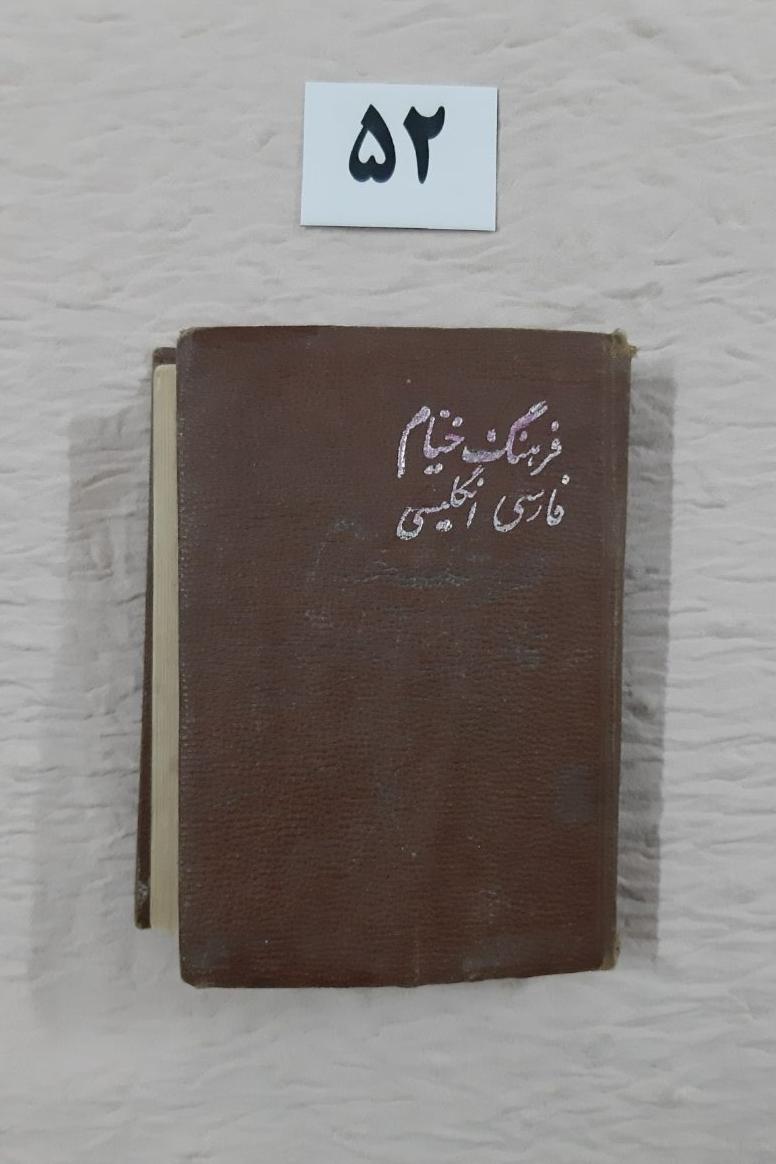 ۵۲
فرهنگ خیام
فارسی انگلیسی